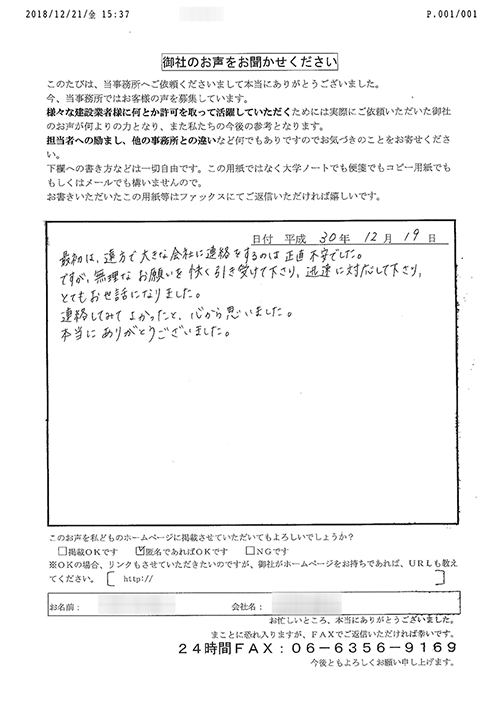 2018/12/21/金 15:37 P.001/001
御社のお声をお聞かせください
このたびは、当事務所へご依頼くださいまして本当にありがとうございました。
今、当事務所ではお客様の声を募集しています。
様々な建設業者様に何とか許可を取って活躍していただくためには実際にご依頼いただいた御社
のお声が何よりの力となり、また私たちの今後の参考となります。
担当者への励まし、他の事務所との違いなど何でもありですのでお気づきのことをお寄せくださ
い。
下欄への書き方などは一切自由です。この用紙ではなく大学ノートでも便箋でもコピー用紙でも
もしくはメールでも構いませんので。
お書きいただいたこの用紙等はファックスにてご返信いただければ嬉しいです。
日付 平成 30年 12月 19日
最初は、遠方で大きな会社に連絡をするのは正直不安でした。
ですが、無理なお願いを快く引き受けて下さり、迅速に対応して下さり、
とてもお世話になりました。
連絡してみてよかったと、心から思いました。
本当にありがとうございました。
このお声を私どものホームページに掲載させていただいてもよろしいでしょうか?
□掲載OKです ☑匿名であればOKです □NGです
※OKの場合、リンクもさせていただきたいのですが、御社がホームページをお持ちであれば、URLも教え
てください。 [ http:// ]
お名前: 会社名:
お忙しいところ、本当にありがとうございました。
まことに恐れ入りますが、FAXでご返信いただければ幸いです。
24時間FAX:06-6356-9169
今後ともよろしくお願い申し上げます。